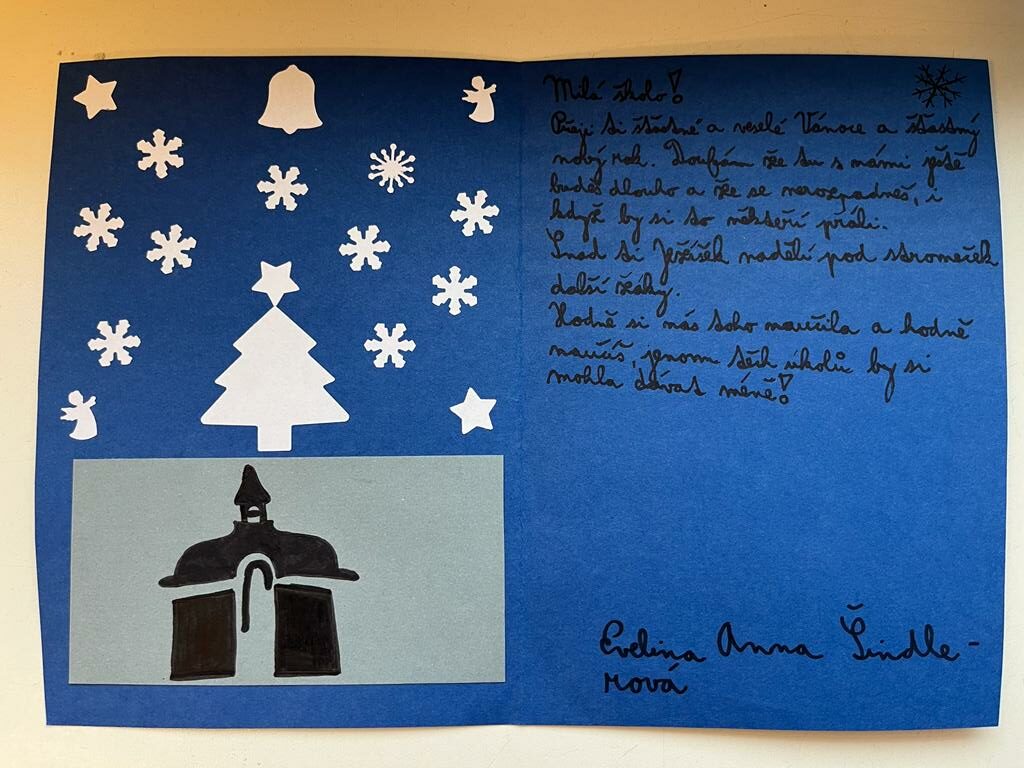 Milá školo!
Přeji ti šťastné a veselé Vánoce a šťastný
nový rok. Doufám že tu s námi ještě
budeš dlouho a že se nerozpadneš, i
když by si to někteří přáli.
Snad ti Ježíšek nadělí pod stromeček
další žáky.
Hodně si nás toho naučila a hodně
naučíš, jenom těch úkolů by si
mohla dávat méně!
Evelina Anna Šindle-
rová